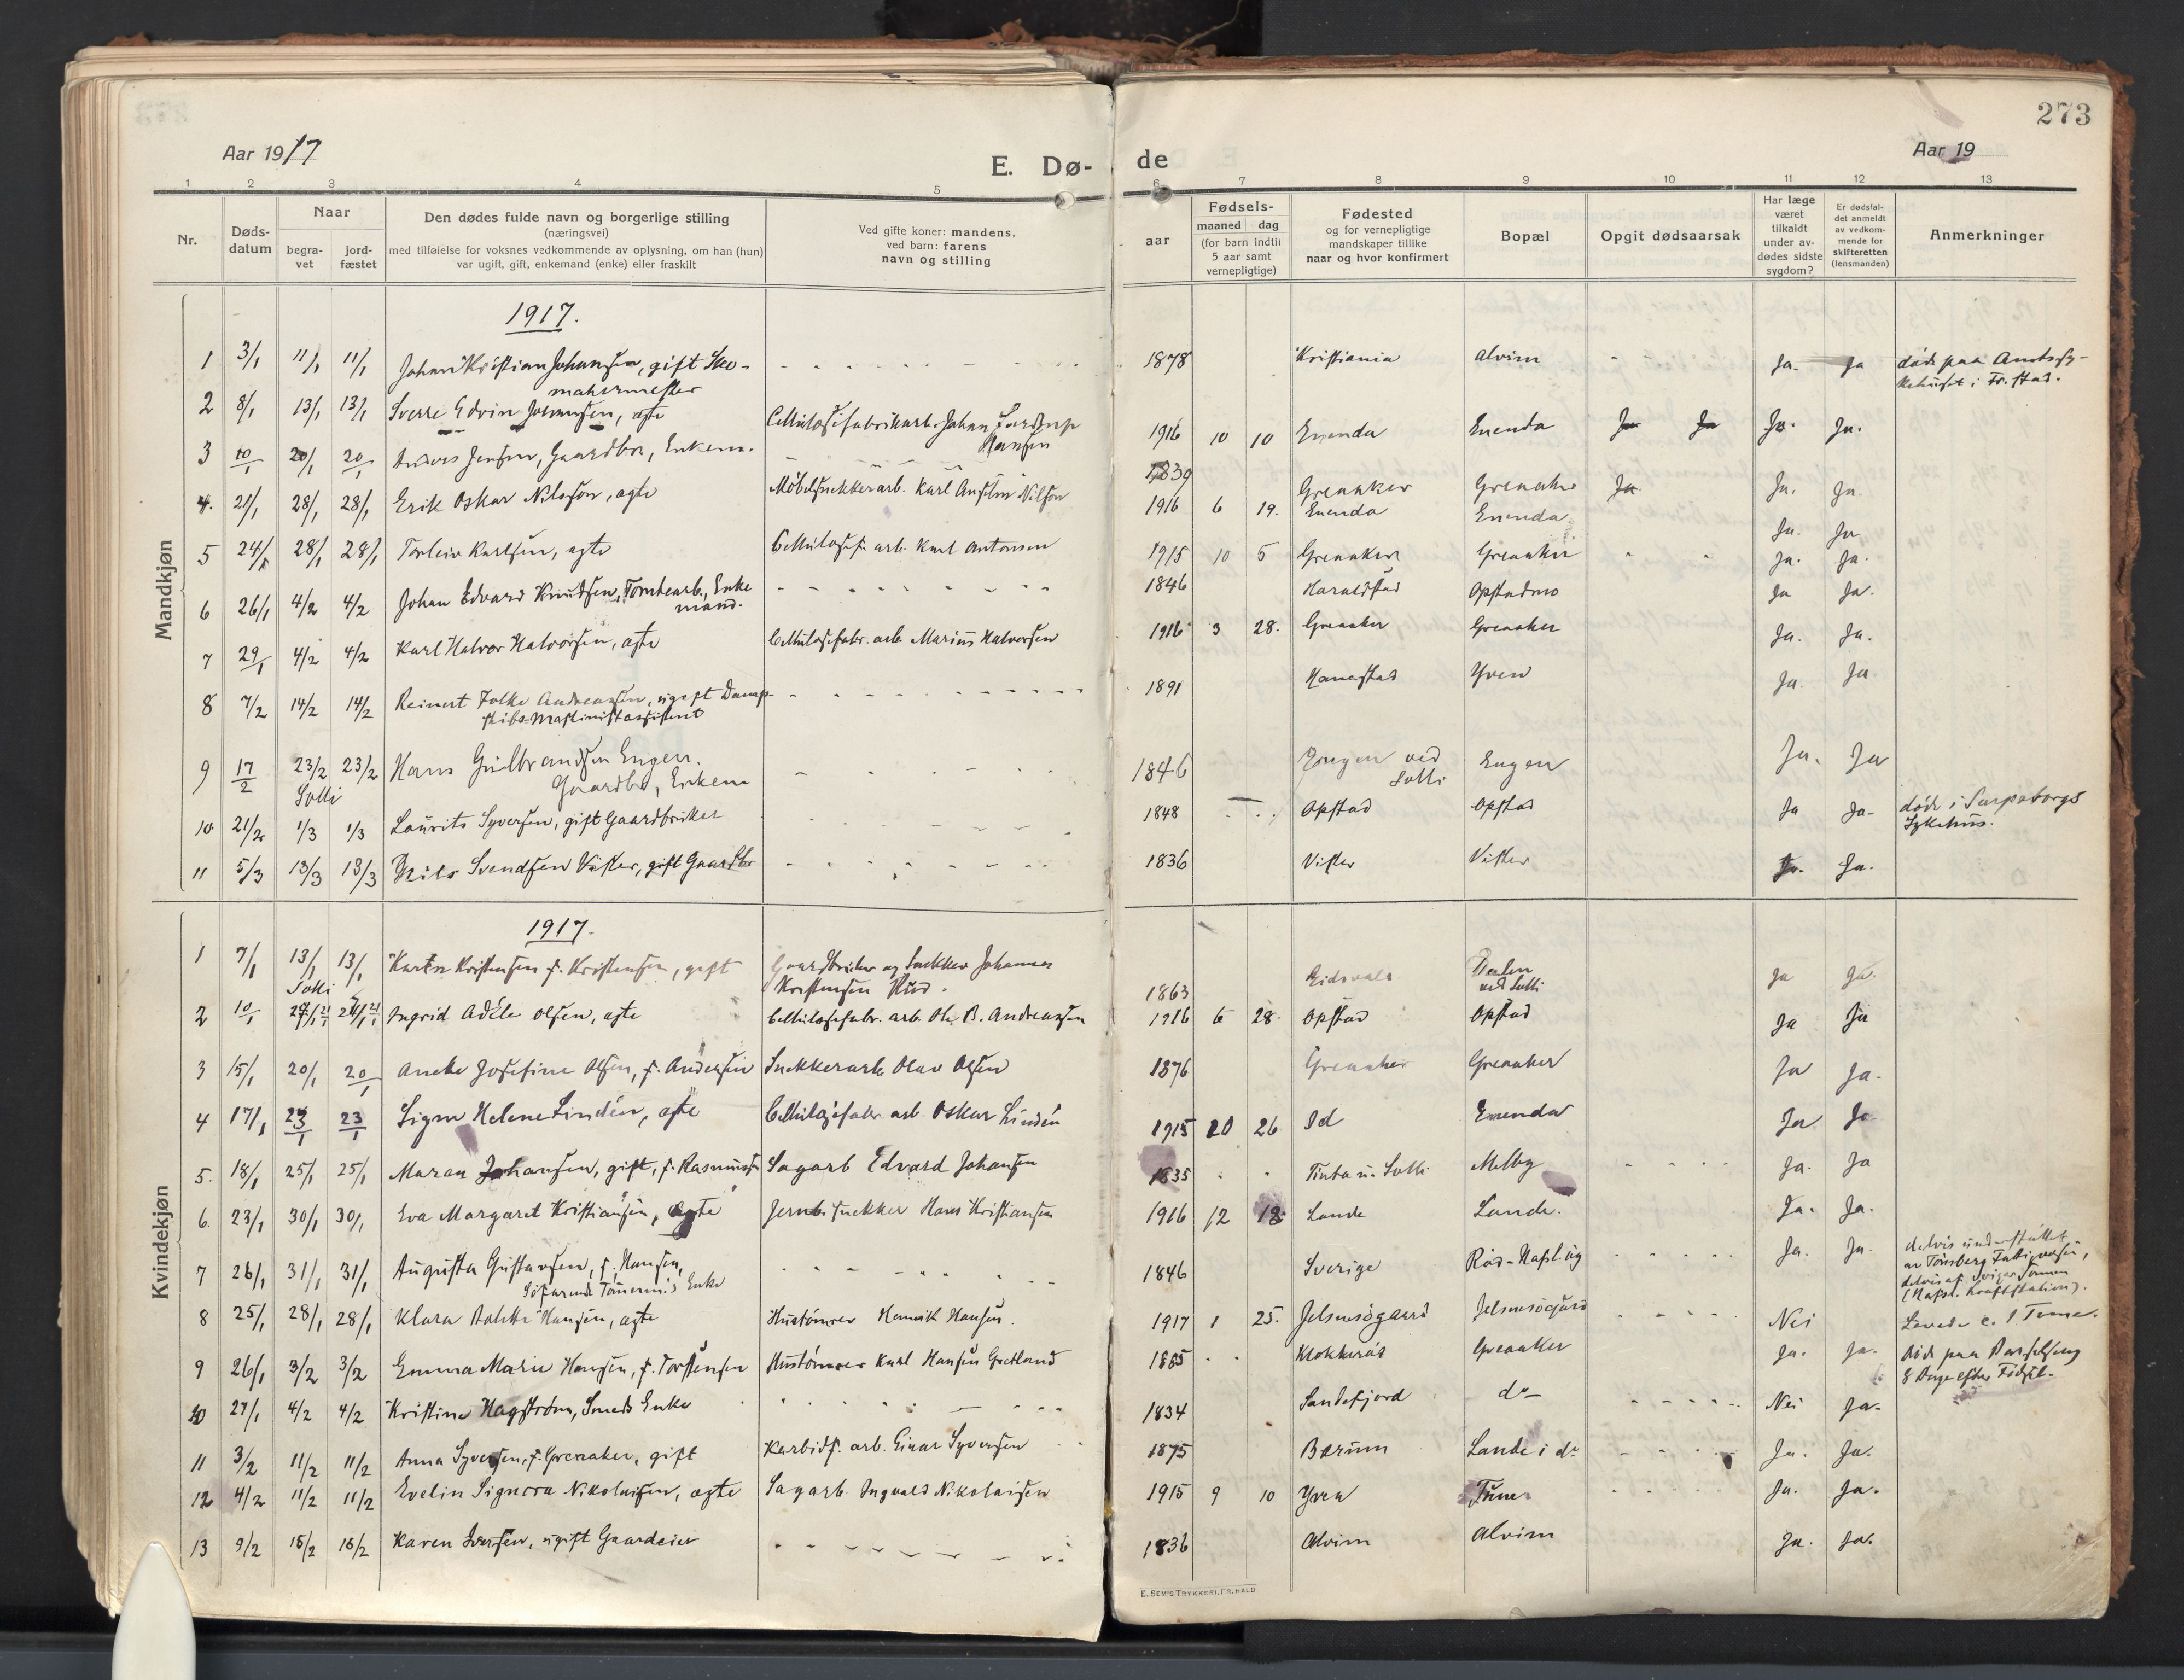 273
Aar 1917
E. Dø-
de
Aar 19
1 2 3 4 5 6 7 8 9 10 11 12 13
Nr.
Døds-
datum
Naar
begra-
vet
jord-
fæstet
Den dødes fulde navn og borgerlige stilling
(næringsvei)
med tilføielse for voksnes vedkommende av oplysning, om han (hun)
var ugift, gift, enkemand (enke) eller fraskilt
Ved gifte koner: mandens,
ved barn: farens
navn og stilling
aar
Fødsels-
maaned dag
(for barn indtil
5 aar samt
vernepligtige)
Fødested
og for vernepligtige
mandskaper tillike
naar og hvor konfirmert
Bopæl
Opgit dødsaarsak
Har læge
været
tilkaldt
under av-
dødes sidste
sygdom?
Er dødsfal-
det anmeldt
av vedkom-
mende for
skifteretten
(lensmanden)
Anmerkninger
Mandkjøn
1917.
1 3/1 11/1 11/1 Johan Kristian Johansen, gift Sko-
makermester
1878 Kristiania Alvim Ja. Ja død paa Amtssy-
kehuset i Fr.stad.
2 8/1 13/1 13/1 Sverre Edvin Johansen, ægte Cellulosefabrikarb. Johan
Hansen
1916 10 10 Enenda Enenda Ja Ja Ja. Ja.
3 10/1 20/1 20/1 Jensen, Gaardbr., Enkem.
1839 Greaaker Greaaker Ja Ja. Ja.
4. 21/1 28/1 28/1 Erik Oskar Nilsson, ægte Møbelsnekkerarb. Karl Anselm Nilson
1916 6 19. Enenda Enenda Ja. Ja
5 24/1 28/1 28/1 Torleiv Karlsen, ægte Cellulosef. arb. Karl Antonsen
1915 10 5 Greaaker Greaaker Ja. Ja.
6 26/1 4/2 4/2 Johan Edvard Knudsen, Tomtearb., Enke
mand.
1846 Haraldstad Opstadmo Ja Ja.
7 29/1 4/2 4/2 Karl Halvor Halvorsen, ægte Cellulosefabr. arb. Marius Halvorsen
1916 3 28. Greaaker Greaaker Ja. Ja.
8 7/2 14/2 14/2 Reinert Folke Andreassen, ugift Damp-
skibs-Maskinistassistent
1891 Hanestad Yven Ja. Ja
9 17/2 23/2 23/2 Hans Gulbrandsen Engen.
Solli Gaardbr., Enkem
1846 Engen ved
Solli Engen Ja. Ja
10 21/2 1/3 1/3 Laurits Syversen, gift Gaardbruker
1848 Opstad Opstad Ja Ja. død i Sarpsborgs
Sykehus.
11 5/3 13/3 13/3 Nils Svendsen Vister, gift Gaardbr
1836 Vister Vister Ja. Ja.
Kvindekjøn
1917.
1 7/1 13/1 13/1 Karen Kristensen f. Kristensen, gift Gaardbruker og Snekker Johannes
Solli Kristensen
1863 Eidsvold Dalen
ved Solli Ja Ja.
2 10/1 21/1 21/1 Ingrid Adéle Olsen, ægte Cellulosefabr. arb. Ole B. Andreassen
1916 6 28. Opstad Opstad Ja Ja
3 15/1 20/1 20/1 Anette Josefine Olsen, f. Andersen Snekkerarb. Olav Olsen
1876 Greaaker Greaaker Ja Ja.
4 17/1 23/1 23/1 Signe Helene Lindén, ægte Cellulosefabr. arb. Oskar Lindén
1915 10 26 Id Enenda Ja Ja
5. 18/1 25/1 25/1 Maren Johansen, gift, f. Rasmussen Sagarb Edvard Johansen
1835 Tinta u. Solli Melby Ja. Ja
6. 23/1 30/1 30/1 Eva Margaret Kristiansen, ægte Jernb. snekker Hans Kristiansen
1916 12 18. Lande Lande. Ja. Ja.
7 26/1 31/1 31/1 Augusta Gustavsen, f. Hansen,
Enke
1846 Sverige Ja. Ja. delvis understøttet
av Tønsberg Fattigvæsen,
delvis af Svigersønnen
(Hafsl. Kraftstation).
8 25/1 28/1 28/1 Klara Hansen, ægte Hustømrer Henrik Hansen.
1917 1 25. Jelsnesøgaard Jelsnesøgaard Nei Levede c. 1 Time.
9 26/1 3/2 3/2 Emma Marie Hansen, f. Torstensen Hustømrer Karl Hansen Grotland
1885 Klokkerød Greaaker Ja. Ja. død paa Barselseng
8 Dage efter Fødsel.
10 27/1 4/2 4/2 Kristine Hagstrøm, Smeds Enke
1834 Sandefjord do Nei Ja.
11 3/2 11/2 11/2 Anna Syversen, f. Greaaker, gift Karbidf. arb. Einar Syversen
1875 Bærum Lande i do Ja. Ja.
12 4/2 11/2 11/2 Evelin Signora Nikolaisen, ægte Sagarb. Ingvald Nikolaisen
1915 9 10 Yven Tune Ja. Ja.
13 9/2 16/2 16/2 Karen Iversen, ugift Gaardeier
1836 Alvim Alvim Ja. Ja.
E. SEM'S TRYKKERI, FR.HALD